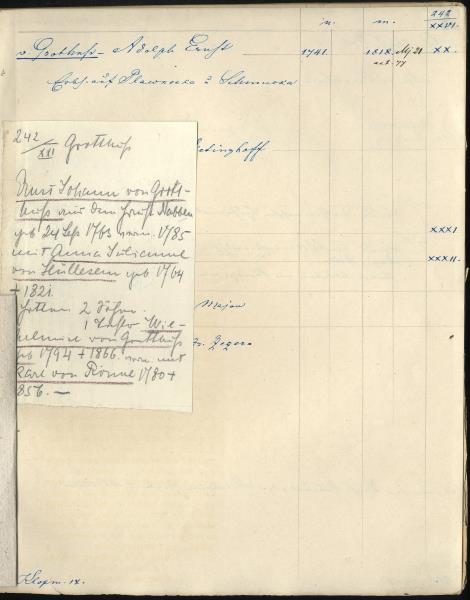 242
XXVI.
n. m.
v Grothuß – Adolph Ernst 1741. 1818. May 21 XX.
aet. 77
Erbh. auf Plawneeka u Schmucka
242
XXI Grotthuß
Johann von Grott-
huß aus dem Hause Nabben
geb 24 Sept 1763 verm. 1785
mit Anna Julianne
von geb 1764
+ 1821.
Hatten 2 Söhne.
1 Tochter Wil-
helmine von Grotthuß
geb 1794 + 1866 verm mit
Karl von Rönne 1780 +
856. —
etinghoff
XXXI
XXXII.
Major
v. Zegera
Klopm. IX.